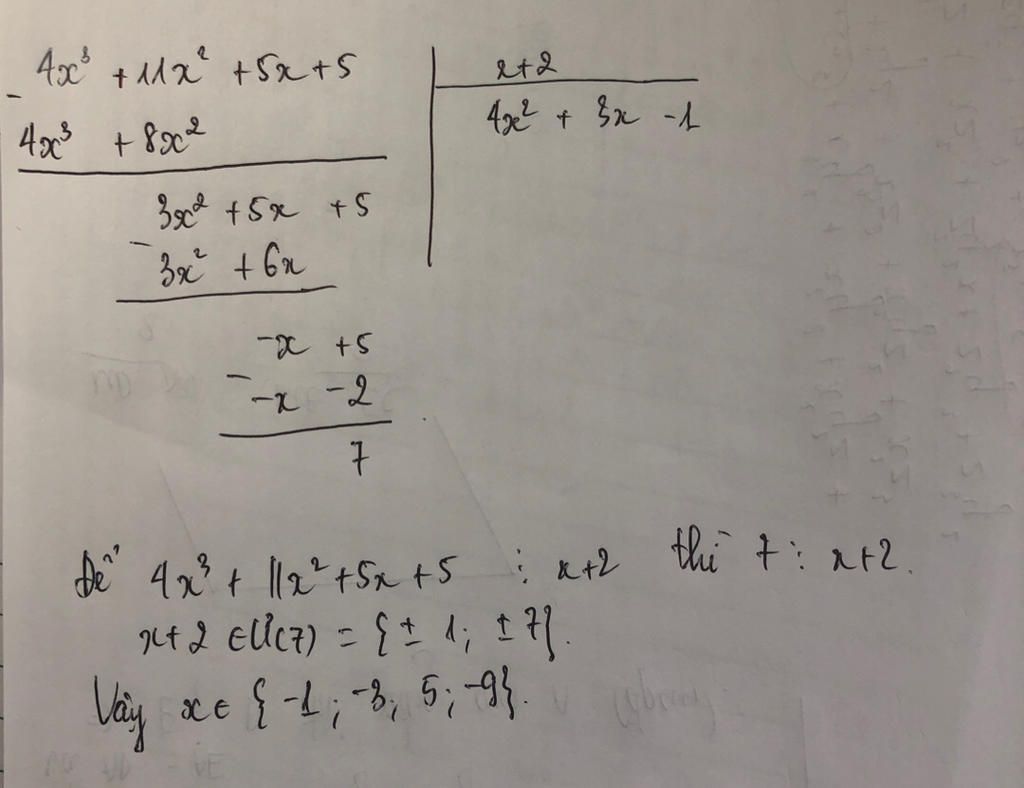 4x³ + 11x² + 5x + 5
x + 2
-
4x³ + 8x²
4x² + 3x - 1
3x² + 5x + 5
-
3x² + 6x
-x + 5
-
-x - 2
7
Để 4x³ + 11x² + 5x + 5 ⋮ x+2 thì 7 ⋮ x+2.
x+2 ∈ Ư(7) = {± 1; ± 7}.
Vậy x ∈ {-1; -3; 5; -9}.